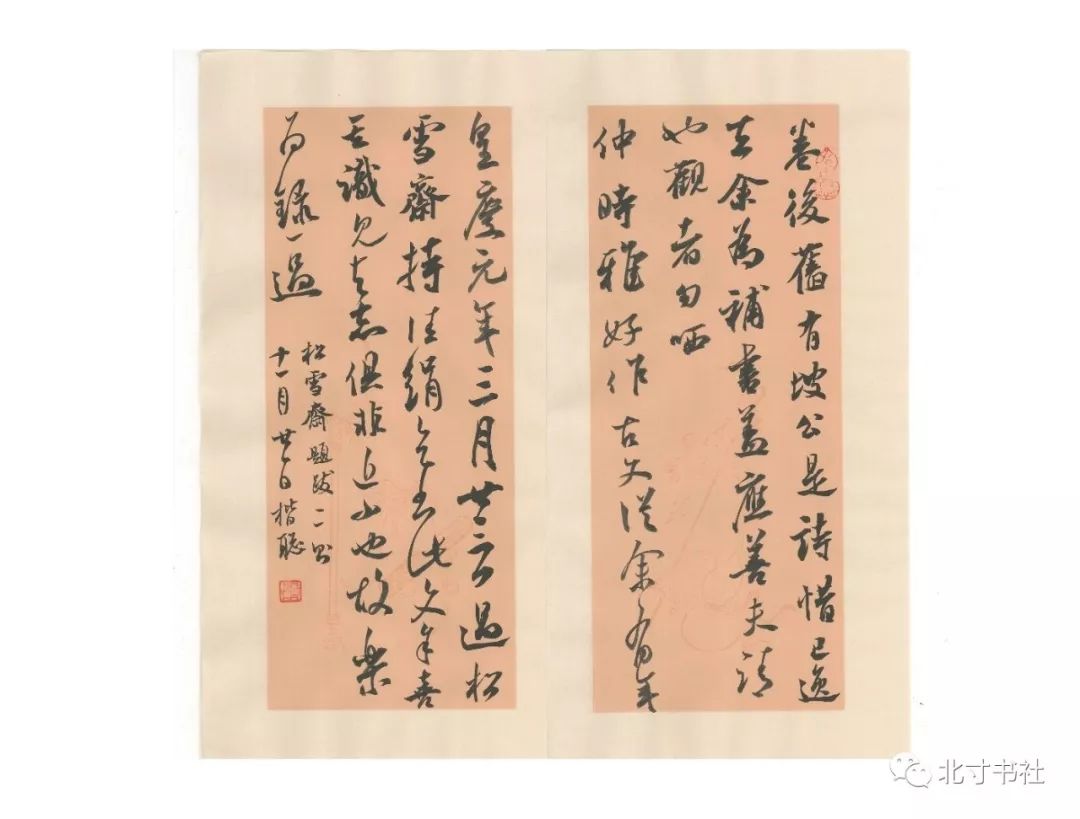 卷後舊有坡公是詩惜已逸
去余為補書蓋應善夫請
也觀者勿哂
仲時雅好作古文從余有年
皇慶元年三月廿三日過松
雪齋持佳絹乞書此文予喜
其識見与志俱非近小也故樂
為錄一過
松雪齋題跋二則
十一月廿日楷聰
北寸书社